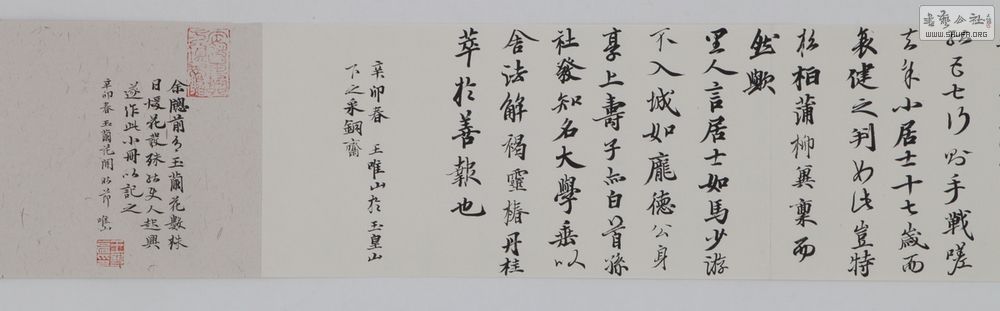 手戰嗟
小居士十七歲而
衰健之判如此豈特
松柏蒲柳異稟而
然歟
里人言居士如馬少游
不入城如龐德公身
享上壽子亦白首孫
社發知名大學垂以
舍法解褐靈椿丹桂
萃於善報也
辛卯春 王唯山於玉皇山
下之采銅齋
余牕前有玉蘭花數株
日暖花發殊
遂作此小冊以記之
辛卯春玉蘭花開時節 唯山
書藝公社
WWW.SHUFA.ORG